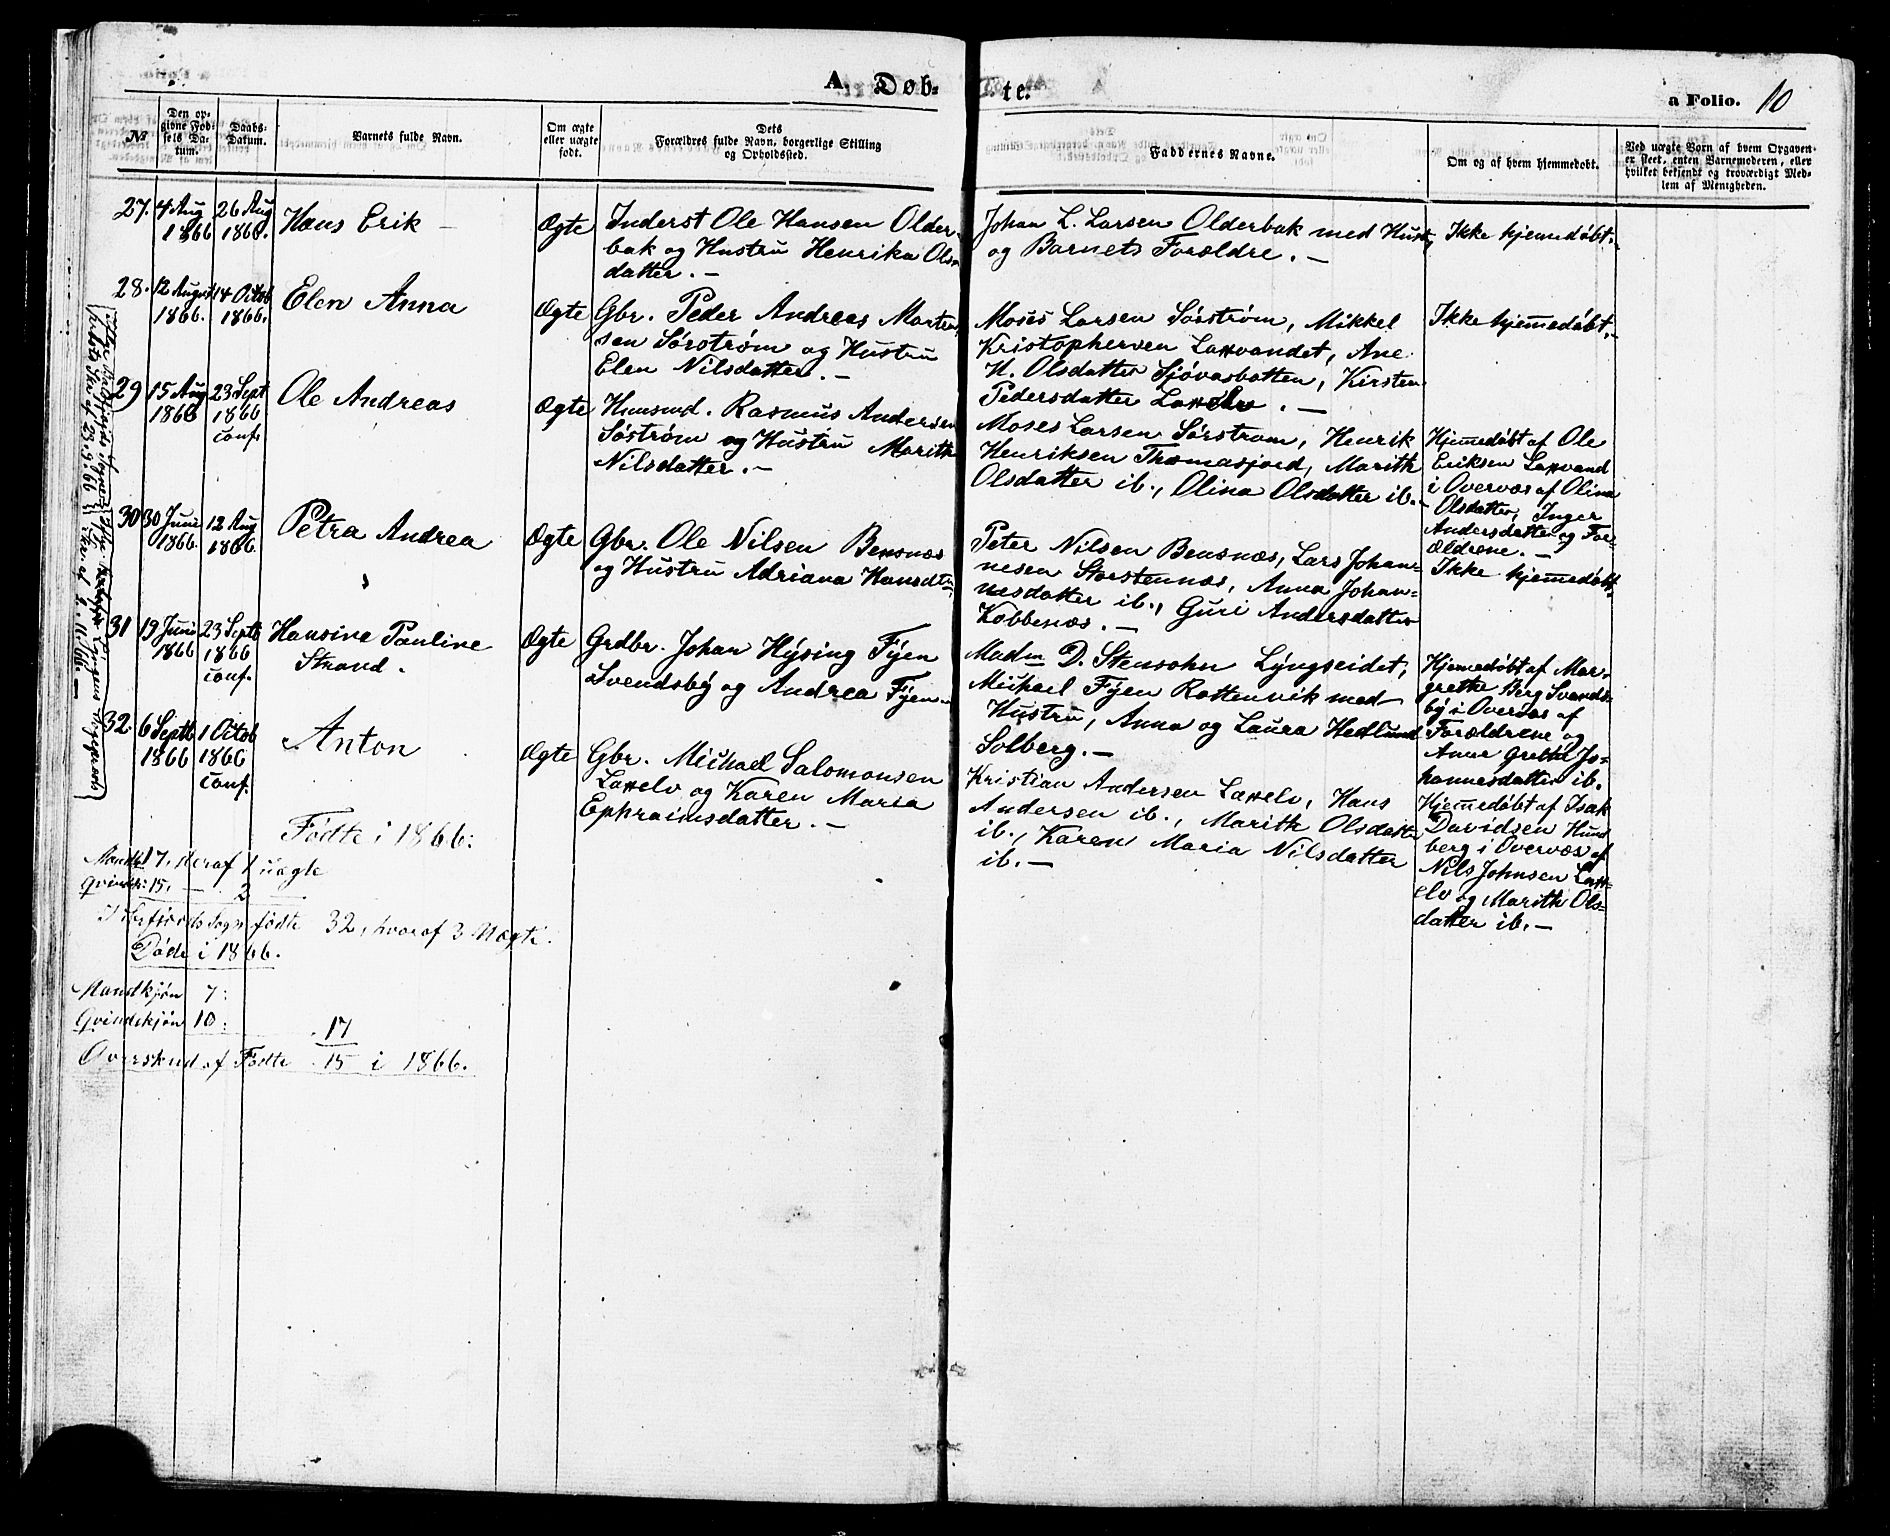 A. Døb-
te.
a Folio. 10
No
Den op-
givne Fød-
sels Da-
tum.
Daabs-
Datum.
Barnets fulde Navn.
Om ægte
eller uægte
født.
Dets
Forældres fulde Navn, borgerlige Stilling
og Opholdssted.
Faddernes Navne.
Om og af hvem hjemmedøbt.
Ved uægte Børn af hvem Opgaven
er skeet, enten Barnemoderen, eller
hvilket bekjendt og troværdigt Med-
lem af Menigheden.
27. 4 Aug
1866
26 Aug
1866.
Hans Erik
Ægte
Inderst Ole Hansen Older-
bak og Hustru Henrika Ols-
datter. -
Johan L. Larsen Olderbak med Hust,
og Barnets Forældre. -
Ikke hjemdøbt. -
28. 12 August
1866.
14 Octob
1866.
Elen Anna
Ægte
Gbr. Peder Andreas Morten
sen Sørstrøm og Hustru
Elen Nilsdatter. -
Moses Larsen Sørstrøm, Mikkel
Kristophersen Laxvandet, Ane
H. Olsdatter Sjøvasbotten, Kirsten
Pedersdatter Laxelv. -
Ikke hjemedøbt. -
29 15 Aug
1866
23 Sept
1866
conf.
Ole Andreas
Ægte
Huusmd. Rasmus Andersen
Søstrøm og Hustru Marith
Nilsdatter. -
Moses Larsen Sørstrøm, Henrik
Henriksen Thomasjord, Marith
Olsdatter ib., Olina Olsdatter ib. -
Hjemedøbt af Ole
Eriksen Laxvand
i Overvær af Olina
Olsdatter, Inger
Andersdatter og For-
ældrene. -
30 30 Juni
1866.
12 Aug
1866.
Petra Andrea
Ægte
Gbr. Ole Nilsen Bensnæs
og Hustru Adriana Hansdtr
Peter Nilsen Bensnæs, Lars Johan-
nesen Storstennæs, Anna Johan-
nesdatter ib., Guri Andersdatter
Kobbenæs. -
Ikke hjemedøbt.
31 19 Juni
1866
23 Septb
1866
conf.
Hansine Pauline
Strand.
Ægte
Grdbr. Johan Hysing Fyen
Svendsby og Andrea Fyen.
Madm D. Stensohn Lyngseidet,
Michael Fyen Rottenvik med
Hustru, Anna og Laura Hedlund
Solberg. -
Hjemedøbt af Mar-
grethe Berg Svends-
by i Overvær af
Forældrene og
Anne Grethe Jo-
hannesdatter ib.
32. 6 Septb
1866
1 Octob
1866
conf.
Anton
Ægte
Gbr. Michael Salomonsen
Laxelv og Karen Maria
Ephraimsdatter. -
Kristian Andersen Laxelv, Hans
Andersen ib., Marith Olsdatter
ib., Karen Maria Nilsdatter
ib. -
Hjemedøbt af Isak
Davidsen Hund
berg i Overvær af
Nils Johnsen Lax-
elv og Marith Ols-
datter ib. -
Fødte i 1866:
Mandk 17, deraf 1 uægte
Qvindk: 15, - 2
Sogn fødte 32, hvoraf 3 Uægte.
Døde i 1866.
Mandkjøn 7:
Qvindekjøn 10:
17
Overskud af Fødte 15 i 1866.